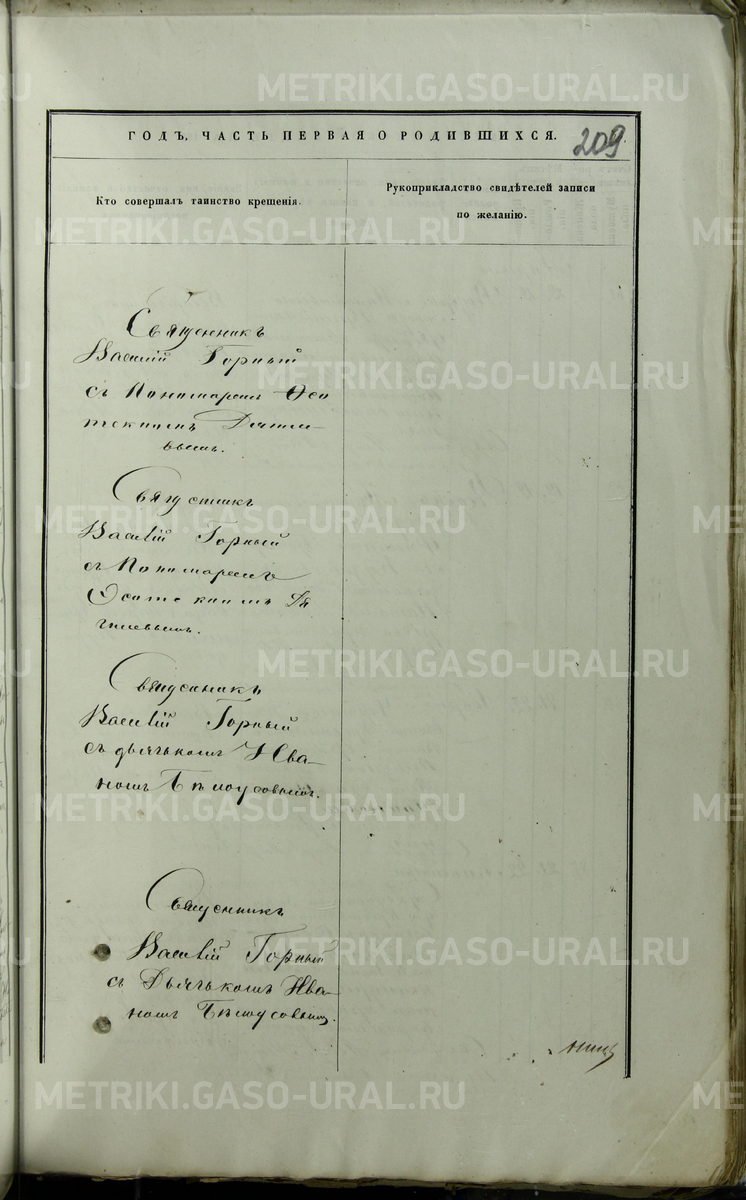 ГОДЪ, ЧАСТЬ ПЕРВАЯ О РОДИВШИХСЯ.
209
Кто совершалъ таинство крещенія.
Рукоприкладство свидѣтелей записи
по желанію.
Священникъ
Василій Горный
съ Пономаремъ Ѳео
Священникъ
Василій Горный
съ Пономаремъ
Священникъ
Василій Горный
съ дьячькомъ Ива-
номъ Бѣлоусовымъ.
Священникъ
Василій Горный
съ Дьячькомъ Ива-
номъ Бѣлоусовымъ.
METRIKI.GASO-URAL.RU